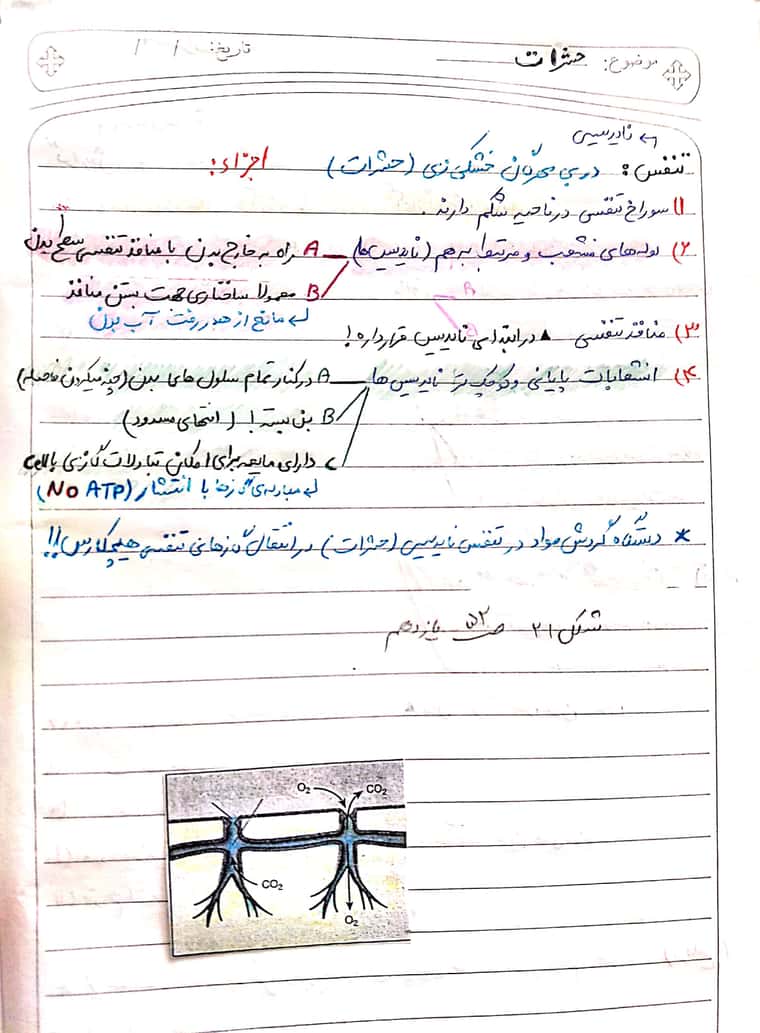 موضوع: حشرات
تاریخ: / /
← نایدیسی
تنفس: در بی مهرگان خشکی زی (حشرات) اجزاء:
۱) سوراخ تنفسی در ناحیه شکم دارند.
۲) لوله‌های منشعب و مرتبط به هم (نایدیس‌ها) A راه به خارج بدن با منافذ تنفسی سطح بدن
B معمولا ساختاری جهت بستن منافذ
↲ مانع از هدر رفتن آب بدن
۳) منافذ تنفسی ▲ در ابتدای نایدیس قرار داره!
۴) انشعابات پایانی و کوچک تر نایدیس ها A در کنار تمام سلول های بدن (چیز میکردن فاصله)
B بن بسته! (انتهای مسدود)
C دارای مایع برای امکان تبادلات گازی با cell
↲ مبادله‌ی گازها با انتشار (No ATP)
* دستگاه گردش مواد در تنفس نایدیسی (حشرات) در انتقال گازهای تنفسی هیچکارس!!
شکل ۲۱ ص ۵۲ یازدهم
O₂ CO₂
CO₂
O₂